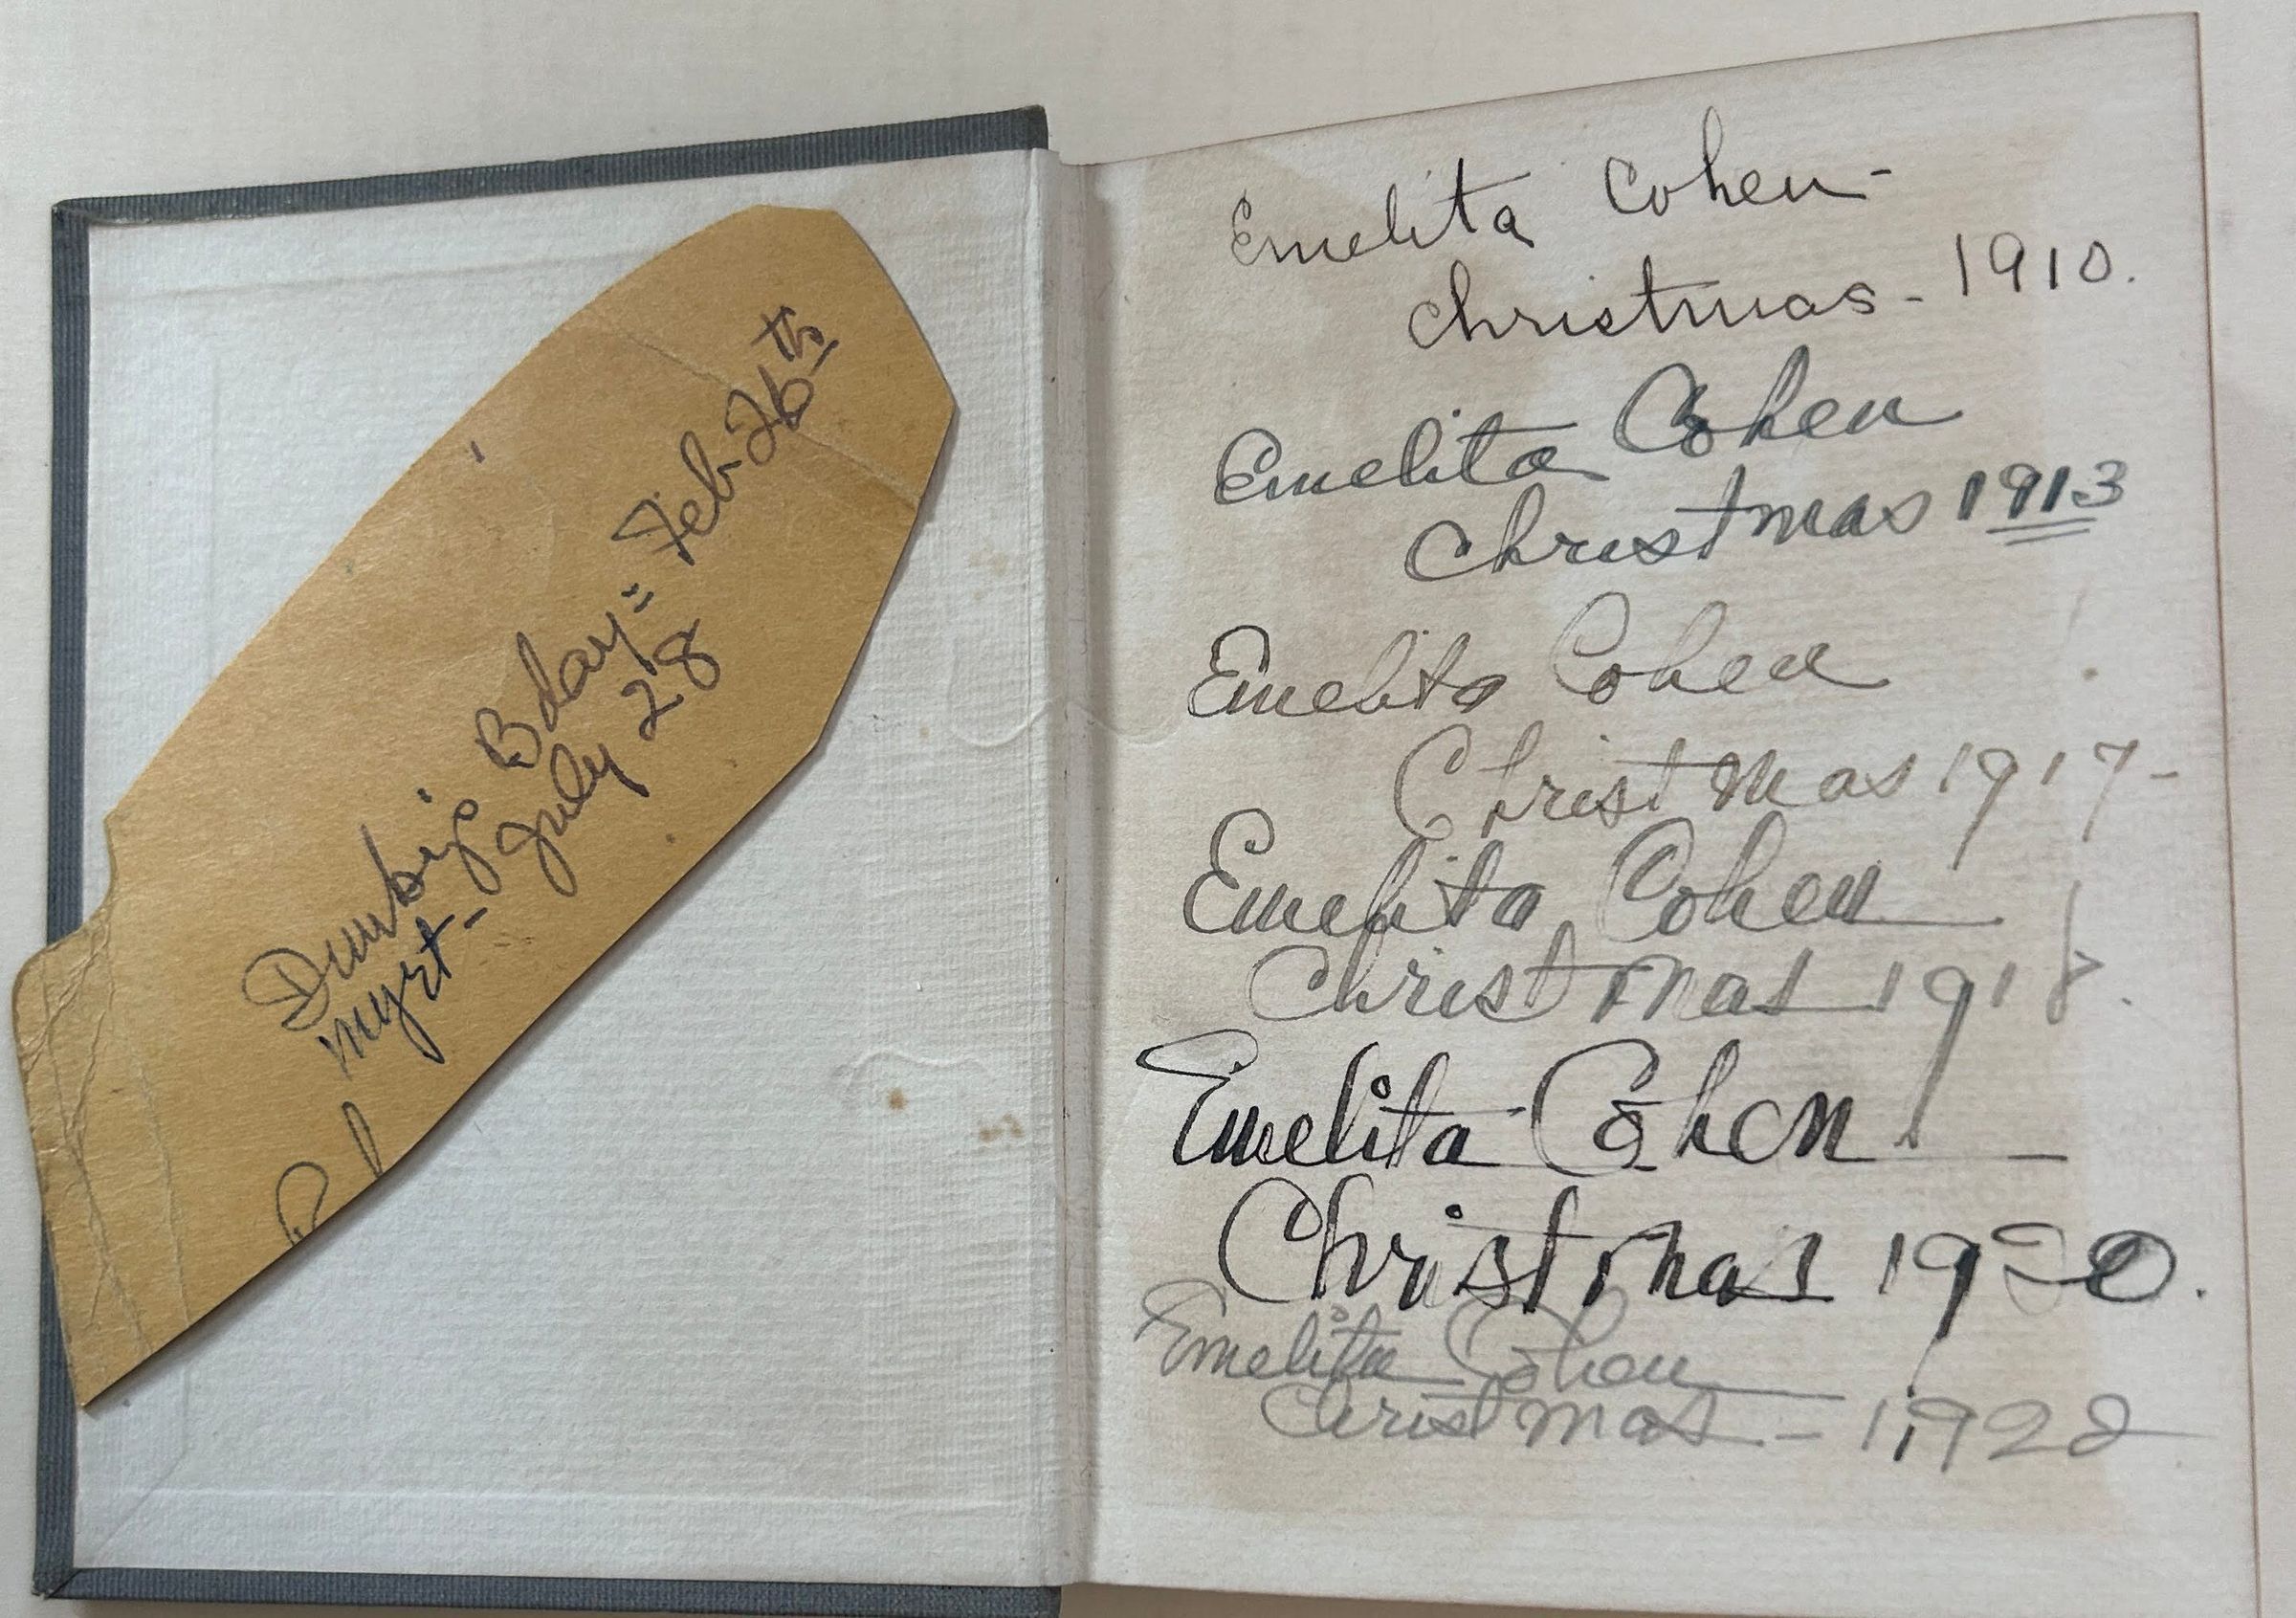 Bday = Feb 26th
myrt - July 28
Emelita Cohen -
Christmas - 1910.
Emelita Cohen
Christmas 1913
Emelita Cohen
Christmas 1917 -
Emelita Cohen
Christmas 1918.
Emelita Cohen -
Christmas 1920.
Emelita Cohen
Christmas - 1922